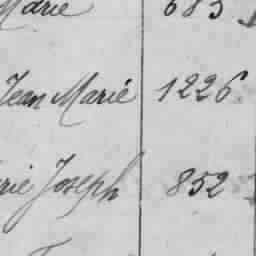 Marie 683
Jean Marie 1226
rie Joseph 852